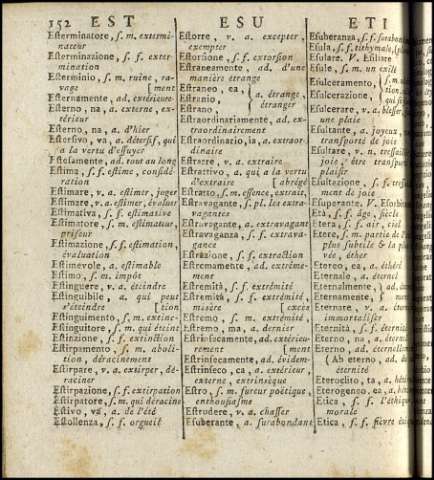 152 EST ESU ETI
Esterminatore, s. m. extermi-
nateur
Esterminazione, s. f. exter
mination
Esterminio, s. m. ruine, ra-
vage [ment
Esternamente, ad. extérieure-
Esterno, na, a. externe, ex-
térieur
Esterno, na, a. d'hier
Estersivo, va, a. détersif, qui
a la vertu d'essuyer
Estesamente, ad. tout au long
Estima, s. f. estime, considé-
ration
Estimare, v. a. estimer, juger
Estimare, v. a. estimer, évaluer
Estimativa, s. f. estimative
Estimatore, s. m. estimateur,
priseur
Estimazione, s. f. estimation,
évaluation
Estimevole, a. estimable
Estimo, s. m. impôt
Estinguere, v. a. éteindre
Estinguibile, a. qui peut
s'éteindre [tion
Estinguimento, s. m. extinc-
Estinguitore, s. m. qui éteint
Estinzione, s. f. extinction
Estirpamento, s. m. aboli-
tion, déracinement
Estirpare, v. a. extirper, dé-
raciner
Estirpazione, s. f. extirpation
Estirpatore, s. m. qui déracine
Estivo, va, a. de l'été
Estollenza, s. f. orgueil
Estorre, v. a. excepter,
exempter
Estorsione, s. f. extorsion
Estraneamente, ad. d'une
manière étrange
Estraneo, ea,
Estranio, a. étrange,
Estrano, étranger
Estraordinariamente, ad. ex-
traordinairement
Estraordinario, ia, a. extraor
dinaire
Estrarre, v. a. extraire
Estrattivo, a. qui a la vertu
d'extraire [abrégé
Estratto, s. m. essence, extrait,
Estravagante, s. f. pl. les extra-
vagantes
Estravagante, a. extravagant
Estravaganza, s. f. extrava-
gance
Estrazione, s. f. extraction
Estremamente, ad. extrême-
ment
Estremità, s. f. extrémité
Estremità, s. f. extrémité,
misère [excès
Estremo, s. m. extrémité,
Estremo, ma, a. dernier
Estrinsecamente, ad. extérieu-
rement [ment
Estrinsecamente, ad. évidem-
Estrinseco, ca, a. extérieur,
externe, extrinsèque
Estro, s. m. fureur poëtique,
enthousiasme
Estrudere, v. a. chasser
Esuberante, a. surabondant
Esuberanza, s. f. surabon
Esula, s. f. tithymale,
Esulare. V. Esiliare
Esule, s. m. un exilé
Esulceramento,
Esulcerazione,
Esulcerare, v. a. blesser,
une plaie
Esultante, a. joyeux,
transporté de joie
Esultare, v. n. tressaillir
joie, être transport
plaisir
Esultazione, s. f. tressaille
ment de joie
Esuperante. V. Esorbitan
Età, s. f. âge, siècle
Etera, s. f. air, ciel
Etere, s. m. partie de l'
plus subtile & la plus
vée, éther
Etereo, ea, a. éthéré
Eternale, a. éternel
Eternalmente, ad.
Eternamente,
Eternare, v. a.
immortaliser
Eternità, s. f. éternité
Eterno, na, a. éternel
Eterno, ad. éternellement
(Ab eterno, ad. de
éternité
Eteroclito, ta, a.
Eterogenso, ea, a.
Etica, s. f. l'éthique,
morale
Etica, s. f. fièvre étique